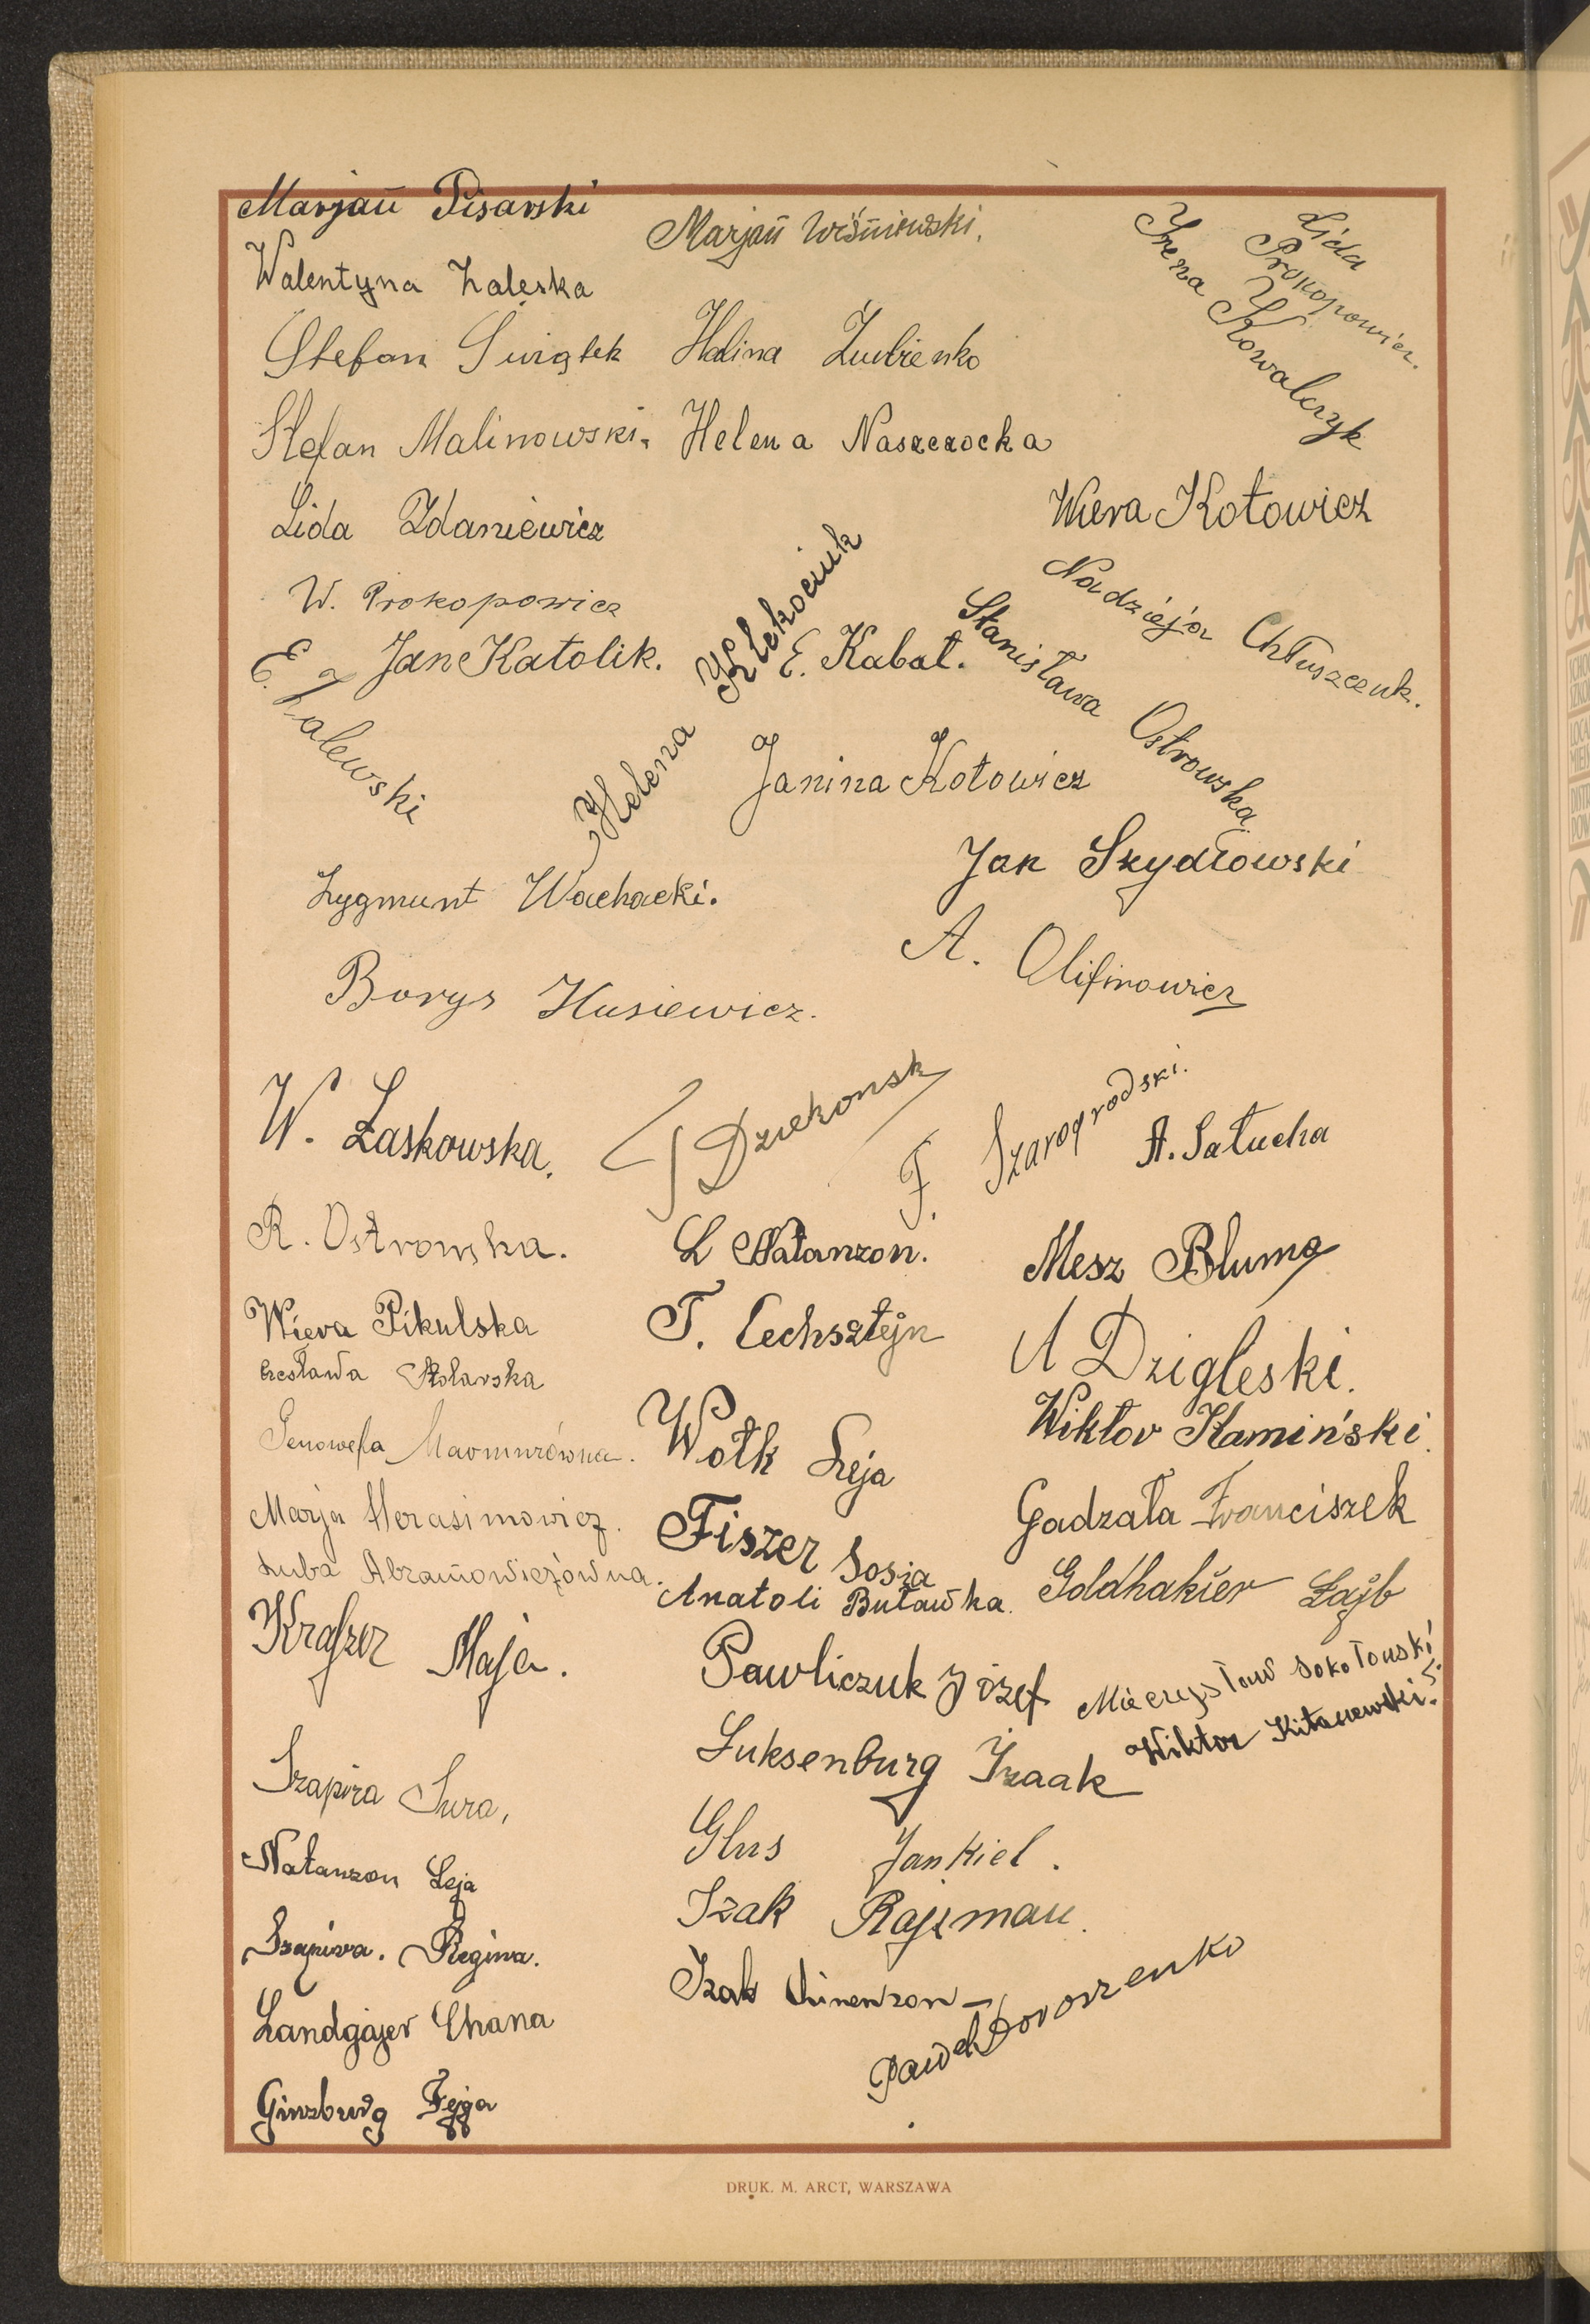 Marjan Pisarski
Marjan Wiśniewski.
Lida Prokopowicz.
Irena Kowalczyk
Walentyna Zaleska
Stefan Świątek
Halina Żubrenko
Stefan Malinowski.
Helena Naszczocka
Lida Zdaniewicz
Wiera Kotowicz
W. Prokopowicz
Nadzieja Chłuszczuk.
Jan Katolik.
Helena Klekociuk
E. Kabat.
Stanisława Ostrowska.
E. Zalewski
Janina Kotowicz
Jan Szydłowski
Zygmunt Wachacki.
A. Olifirowicz
Borys Husiewicz.
W. Laskowska.
Dziekonsk
F. Szarogrodski.
A. Sałucha
R. Ostrowska.
L Natanzon.
Mesz Bluma
Wiera Pikulska
T. Lechsztejn
A Dzigleski.
Czesława Stolarska
Wiktor Kamiński.
Genowefa
Wołk Leja
Marja Herasimowicz.
Fiszer Sosia
Gadzała Franciszek
Luba Abramowiczówna.
Anatoli Buławka.
Goldhakier Lajb
Krajzer Maja.
Pawliczuk Józef
Mieczysław Sokołowski
Wiktor Kitajewski.
Szapira Sura,
Luksenburg Izaak
Natanzon Leja
Glus Jankiel.
Szapira. Regina.
Izak Rajzman.
Landgajer Chana
Izak Chinenzon
Paweł Doroszenko
Ginzburg Fejga
DRUK. M. ARCT, WARSZAWA